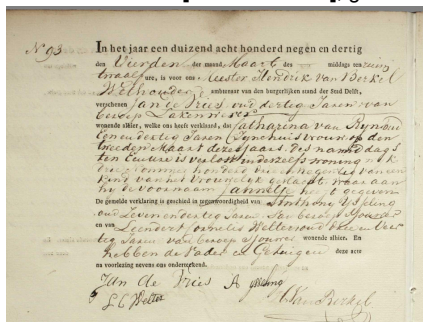 N° 93
In het jaar een duizend acht honderd negen en dertig
den Vierden der maand Maart des middags ten
twaalf ure, is voor ons, Meester Hendrik van Berkel
Wethouder ambtenaar van den burgerlijken stand der Stad Delft,
verschenen Jan de Vries oud dertig Jaren van
beroep Lakenwever
wonende alhier, welke ons heeft verklaard, dat Catharina van
Jaren Zijne huisvrouw op den
tweeden Maart dezes jaars des namiddags
ten Eenure is verlost in derzelfs woning
honderd een en negentig van een
kind van het Vrouwelijk geslacht, waaraan
hij de voornaam Jannetje heeft gegeven
De gemelde verklaring is geschied in tegenwoordigheid van Anthony IJsseling
oud Zeven en dertig Jaren van beroep Sjouwer
en van Leendert Cornelis Welter oud
tig Jaren van beroep Sjouwer wonende alhier. En
hebben de Vader en Getuigen deze acte
na voorlezing nevens ons onderteekend.
Jan de Vries A IJsseling
L C Welter
H Van Berkel